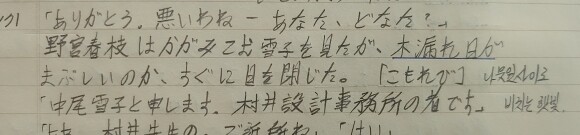 「ありがとう。悪いわねー あなた、どなた?」
野宮春枝はかがみてお雪子を見たが、木漏れ日が
まぶしいのか、すぐに目を閉じた。 「こもれび」 나무잎사이로
「中尾雪子と申します。村井設計事務所の者です。」 비치는 햇빛.
村井先生の、ご近所ね」「はい